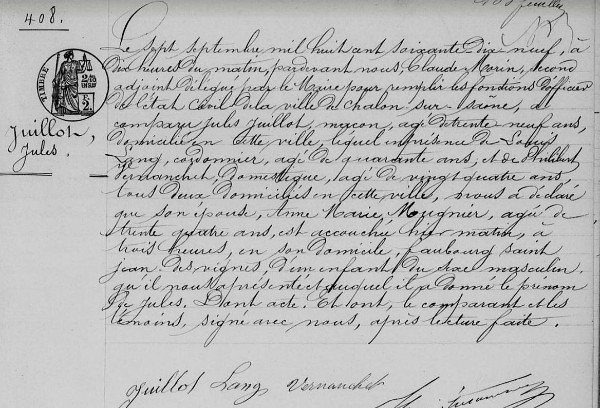 408.
Juillot,
Jules.
TIMBRE
Le sept septembre mil huit cent soixante dix neuf, à
dix heures du matin, pardevant nous, Claude Morin, second
adjoint délégué par le Maire pour remplir les fonctions d'officier
de l'état civil de la ville de Chalon-sur-Saône, a
comparu Jules Juillot, maçon, âgé de trente neuf ans,
domicilié en cette ville, lequel en présence de Louis
Lang, cordonnier, âgé de quarante ans, et de Philibert
Vernanchet, domestique, âgé de vingt quatre ans,
tous deux domiciliés en cette ville, nous a déclaré
que son épouse, Anne Marie Mugnier, âgée de
trente quatre ans, est accouchée hier matin, à
trois heures, en son domicile, faubourg saint
jean des vignes, d'un enfant du sexe masculin.
qu'il nous a présenté et auquel il a donné le prénom
de Jules. Dont acte. Et ont, le comparant et les
témoins, signé avec nous, après lecture faite.
Juillot Lang Vernanchet